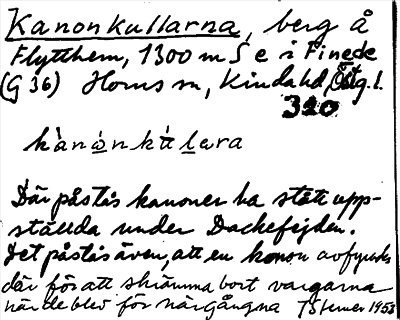 Kanonkullarna, berg å
Flytthem, 1300 m S e i Finede
(G 36) Horns sn, Kinda hd, Östg. l.
320
kànònkùlera
Där påstås kanoner ha stått upp-
ställda under Dackefejden.
Det påstås även, att en kanon avfyrades
där för att skrämma bort vargarna
när de blev för närgångna 1958